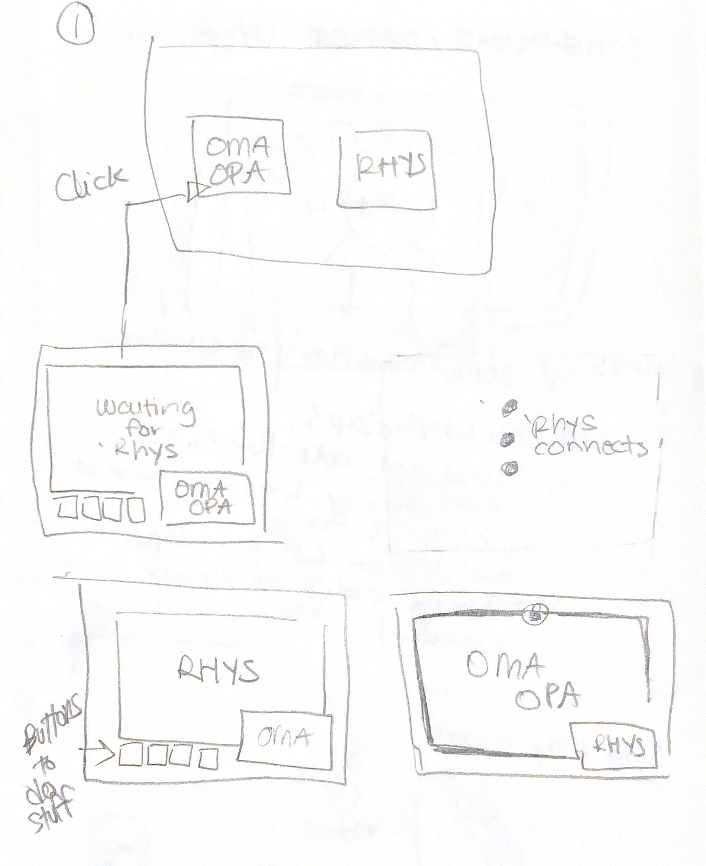 1
OMA
OPA
RHYS
Click
Waiting
for
Rhys
OMA
OPA
Rhys
connects
RHYS
OMA
Buttons
to
stuff
OMA
OPA
RHYS